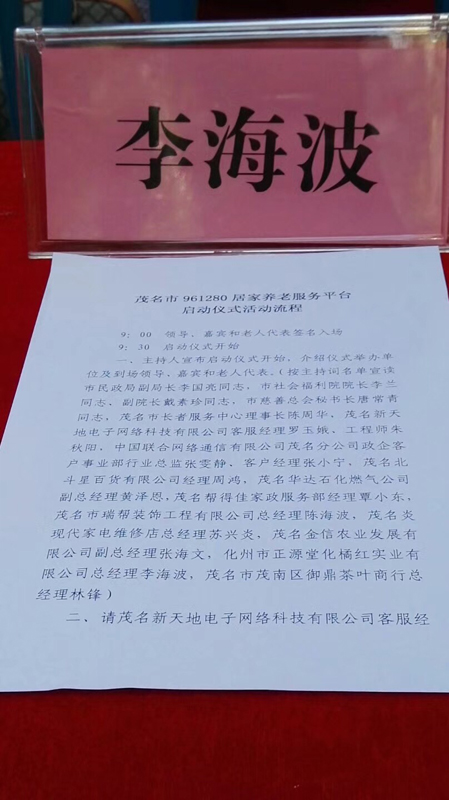 李海波
茂名市961280居家养老服务平台
启动仪式活动流程
9：00 领导、嘉宾和老人代表签名入场
9：30 启动仪式开始
一、主持人宣布启动仪式开始，介绍仪式举办单
位及到场领导、嘉宾和老人代表。（按主持词名单宣读
市民政局副局长李国亮同志，市社会福利院院长李兰
同志、副院长戴素珍同志，市慈善总会秘书长唐常青
同志，茂名市长者服务中心理事长陈周华，茂名新天
地电子网络科技有限公司客服经理罗玉娥、工程师朱
秋阳，中国联合网络通信有限公司茂名分公司政企客
户事业部行业总监张雯静、客户经理张小宁，茂名北
斗星百货有限公司经理周鸿，茂名华达石化燃气公司
副总经理黄泽恩，茂名帮得佳家政服务部经理覃小东，
茂名市瑞帮装饰工程有限公司总经理陈海波，茂名炎
现代家电维修店总经理苏兴炎，茂名金信农业发展有
限公司副总经理张海文，化州市正源堂化橘红实业有
限公司总经理李海波，茂名市茂南区御鼎茶叶商行总
经理林锋）
二、请茂名新天地电子网络科技有限公司客服经